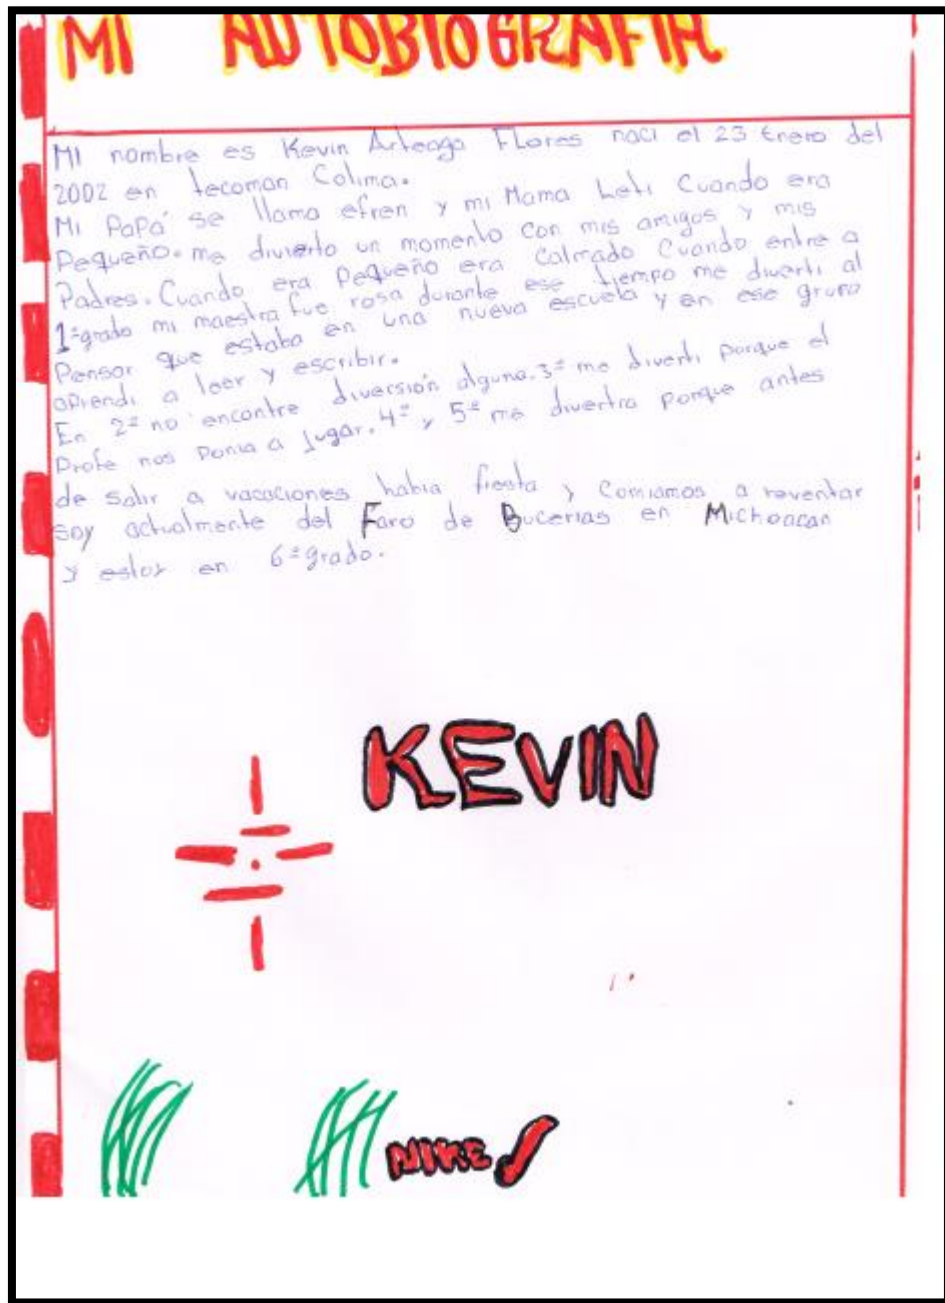 MI AUTOBIOGRAFIA
MI nombre es Kevin Arteaga Flores naci el 23 Enero del
2002 en tecoman Colima.
Mi PaPá se llama efren y mi Mama Leti Cuando era
Pequeño. me divierto un momento con mis amigos y mis
Padres. Cuando era Pequeño era Calmado Cuando entre a
1º grado mi maestra fue rosa durante ese tiempo me diverti al
Pensar que estaba en una nueva escuela y en ese grupo
aprendi a leer y escribir.
En 2º no encontre diversión alguna. 3º me diverti porque el
Profe nos ponia a jugar. 4º y 5º me divertia porque antes
de salir a vacaciones habia fiesta y Comiamos a reventar
soy actualmente del Faro de Bucerias en Michoacan
y estoy en 6º grado.
KEVIN
NIKE